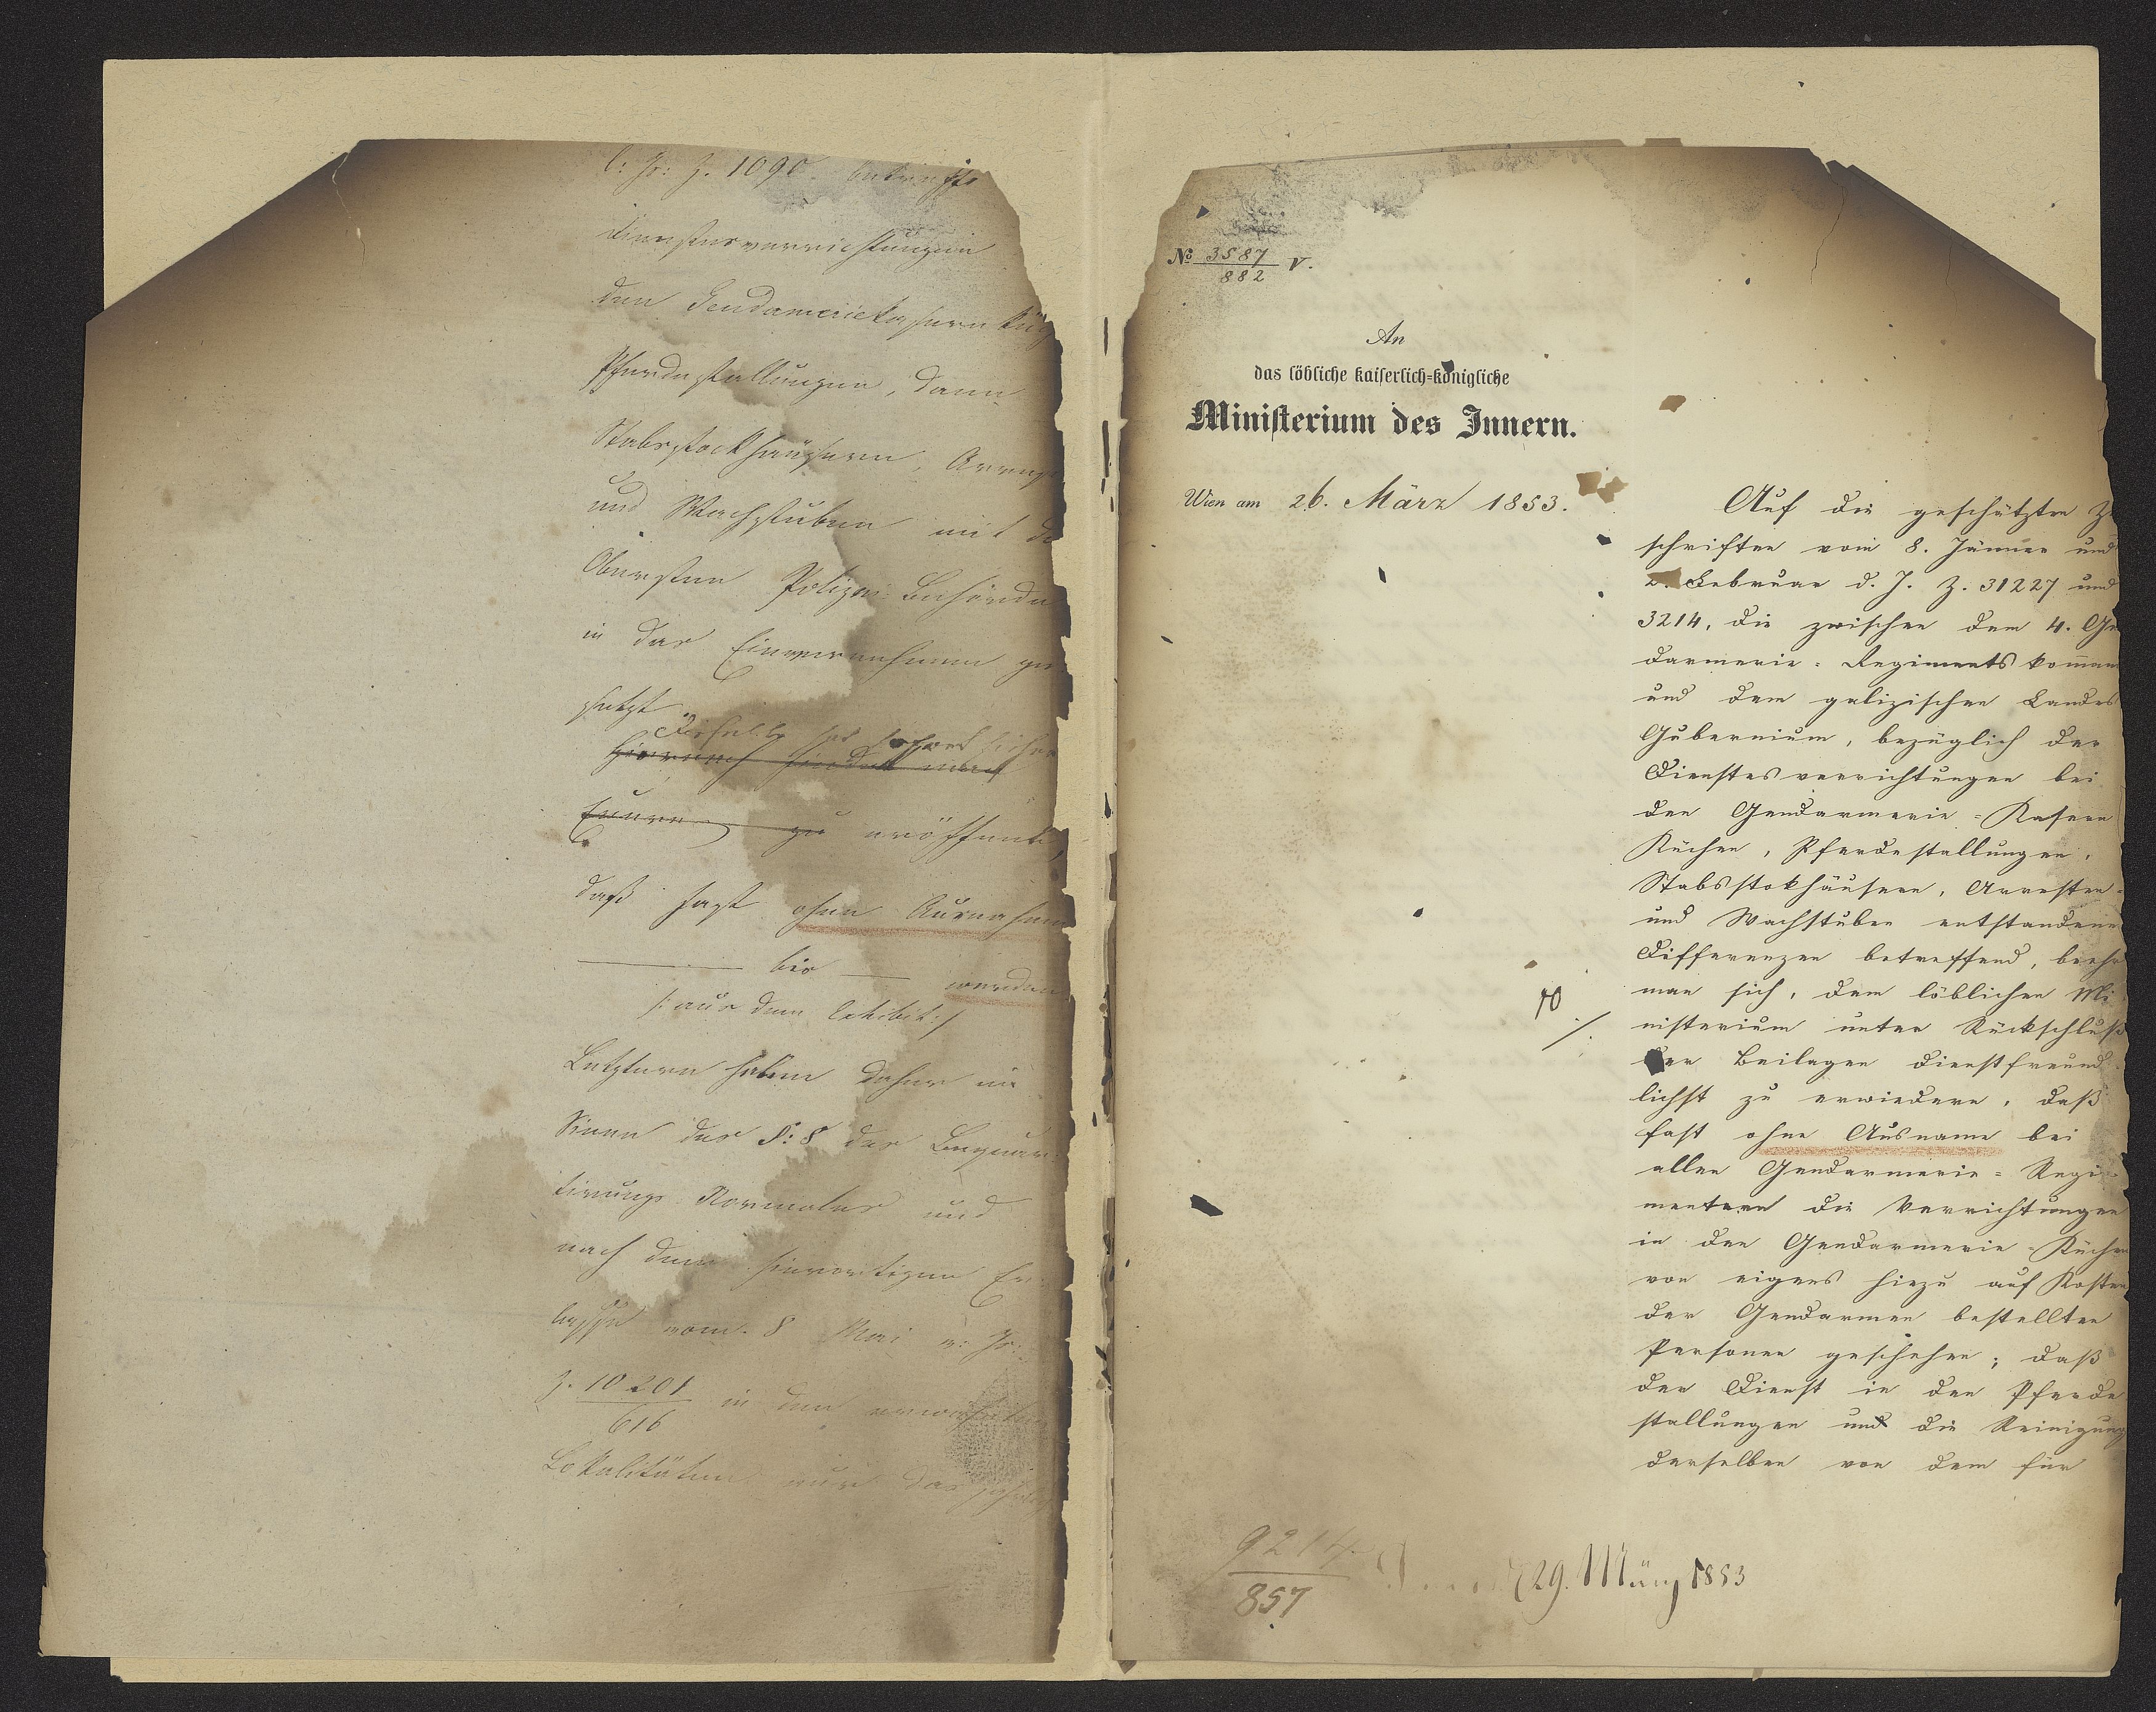 l: Js: Z. 1090. betreffs
Dienstesverrichtungen
den Gendameriekasern Küch
Pferdestallungen, dann
Stabsstockhäusern, Arrest
und Wachstuben mit de
Obersten Polizei-Behörde
in das Einvernehmen ge
setzt
Dieselbe hat
Hiernach findet man
zu eröffnet,
daß fast ohne Ausnahme
bis
werden
/: aus dem Exhibit :/
Letztere haben daher im
Sinne des §: 8 des Bequar
tirungs Normales und
nach dem hierortigen Er
lasse vom 8 Mai v: Js:
Z. 10201/616 in den erwähnten
Lokalitäten nur das
№ 3587/882 V.
An
das löbliche kaiserlich-königliche
Ministerium des Innern.
Wien am 26. März 1853.
Auf die geschätzten Z
schriften vom 8. Jänner und
2. Februar d. J. Z. 31227 und
3214, die zwischen dem 4. Ge
darmerie-Regiments kom̄an
und dem galizischen Landes
Gubernium, bezüglich der
Dienstesverrichtungen bei
den Gendarmerie-Kasern
Küchen, Pferdestallungen,
Stabsstokhäusern, Arresten-
und Wachstuben entstandene
Differenzen betreffend, beehr
man sich, dem löblichen Mi
nisterium unter Rückschluß
der Beilagen dienstfreund
lichst zu erwiedern, daß
fast ohne Ausname bei
allen Gendarmerie-Regi-
mentern die Verrichtungen
in den Gendarmerie-Küchen
von eigens hiezu auf Kosten
der Gendarmen bestellten
Personen geschehen; daß
der Dienst in den Pferde
stallungen und die Reinigung
derselben von dem für
9214/857
29. März 1853